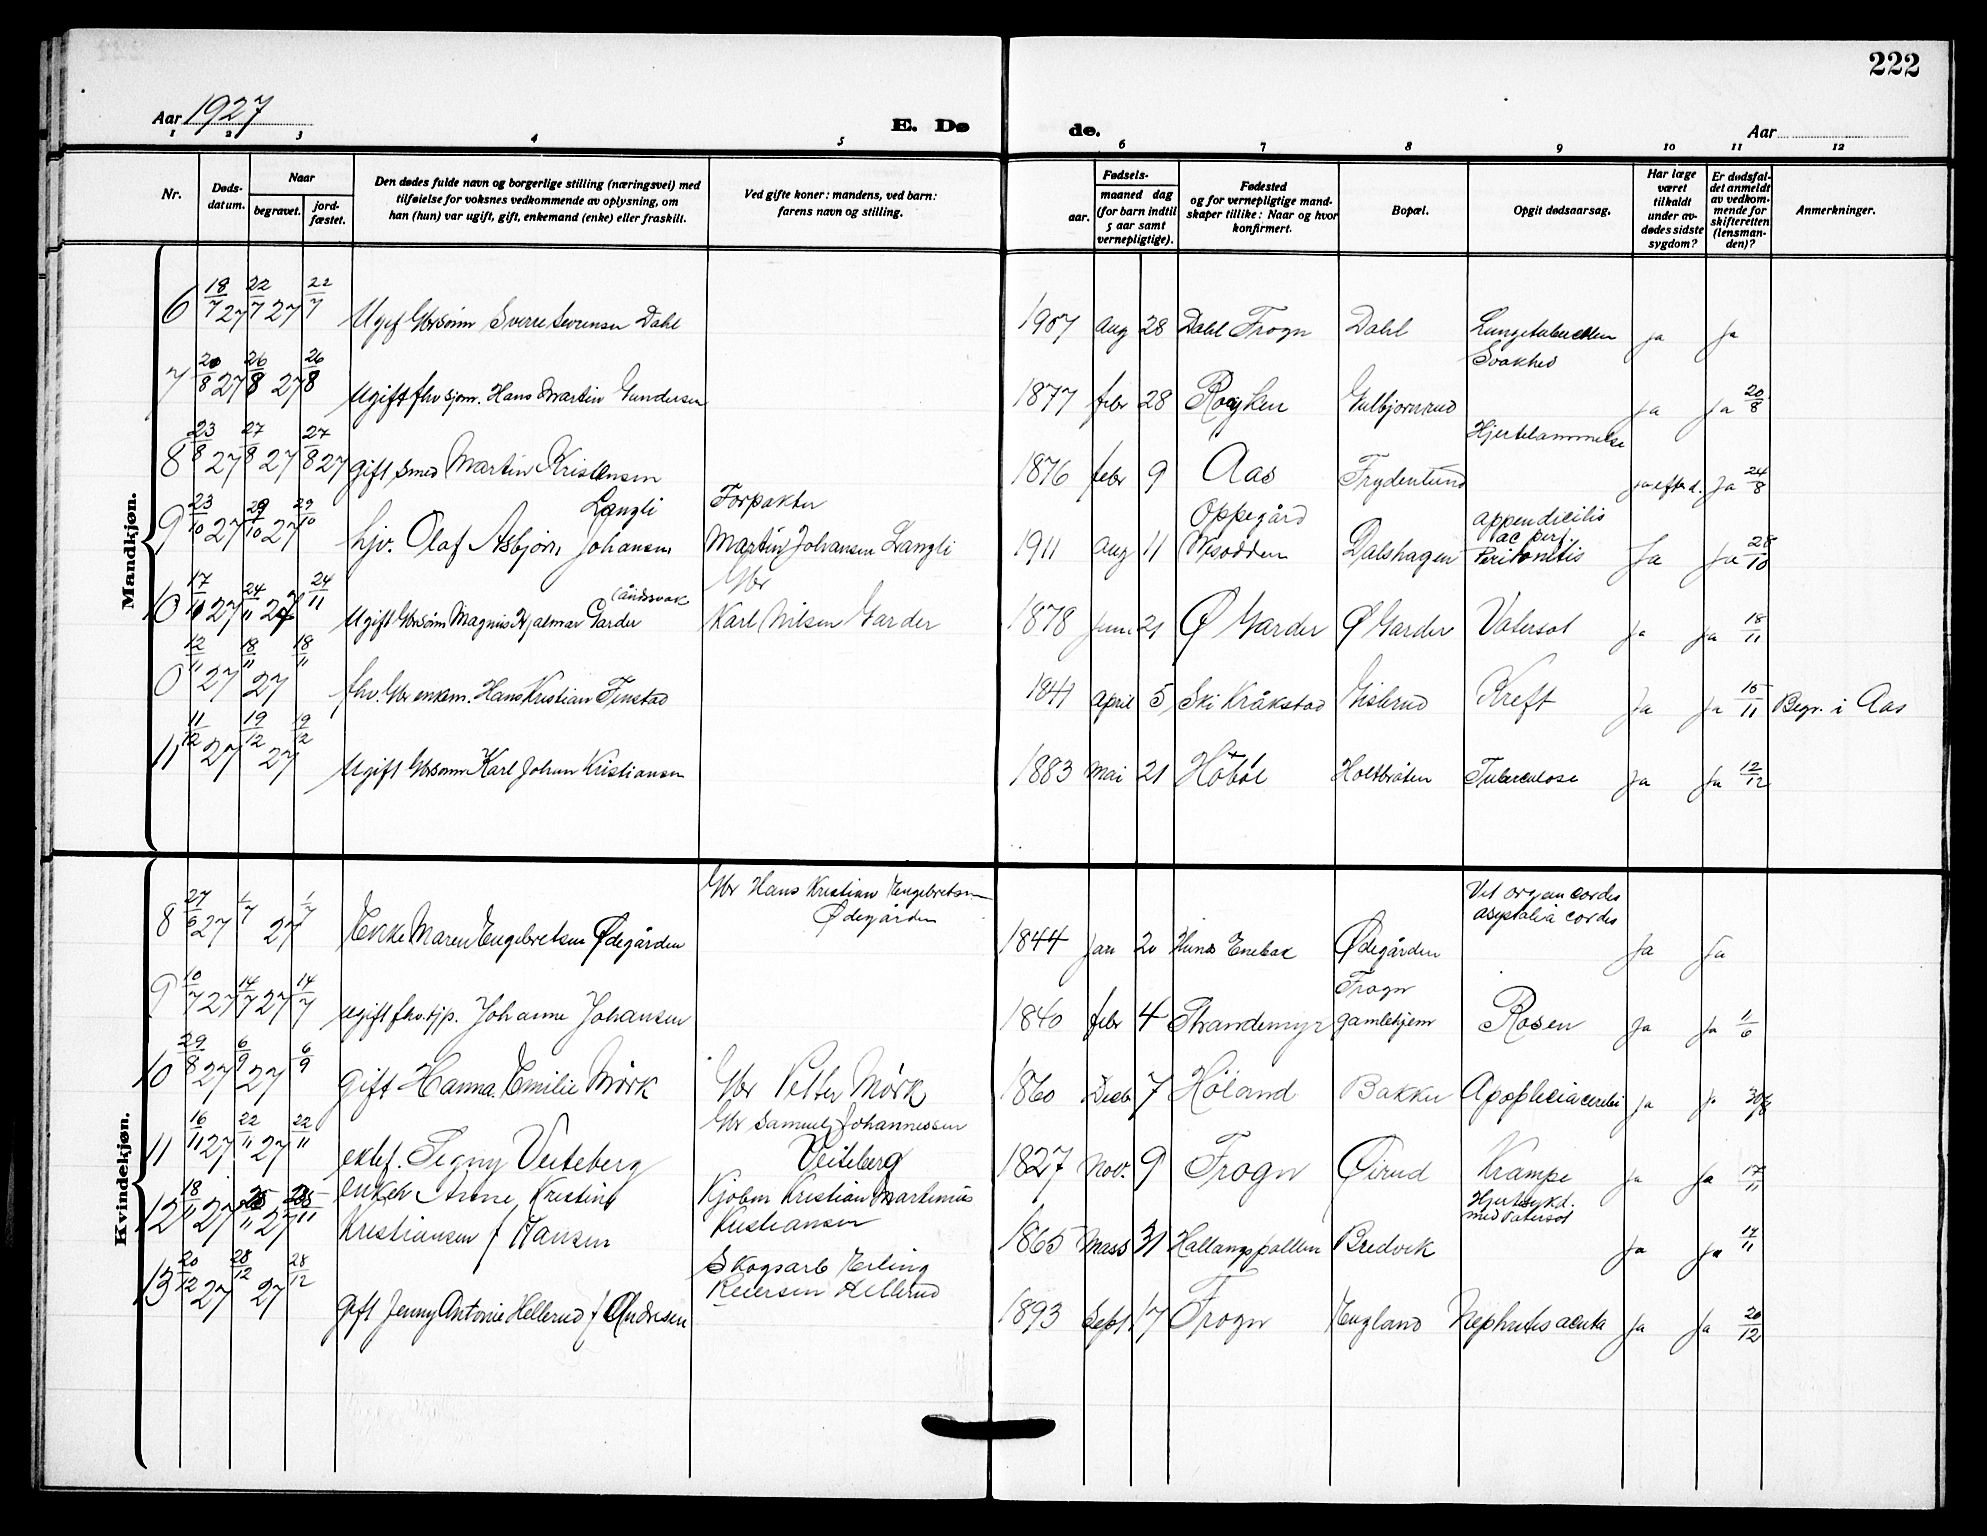 222
Aar 1927
E. Dø de.
Aar
1 2 3 4 5 6 7 8 9 10 11 12
Nr.
Døds-
datum.
Naar
begravet.
jord-
fæstet.
Den dødes fulde navn og borgerlige stilling (næringsvei) med
tilføielse for voksnes vedkommende av oplysning, om
han (hun) var ugift, gift, enkemand (enke) eller fraskilt.
Ved gifte koner: mandens, ved barn:
farens navn og stilling.
Fødsels-
aar.
maaned dag
(for barn indtil
5 aar samt
vernepligtige).
Fødested
og for vernepligtige mand-
skaper tillike: Naar og hvor
konfirmert.
Bopæl.
Opgit dødsaarsag.
Har læge
været
tilkaldt
under av-
dødes sidste
sygdom?
Er dødsfal-
det anmeldt
av vedkom-
mende for
skifteretten
(lensman-
den)?
Anmerkninger.
Mandkjøn.
6 18/7 27 22/7 27 22/7 Ugif Gbrsønn Sverre Sørensen Dahl 1907 Aug 28 Dahl Frogn Dahl Lungetuberculen ja Ja
Svakhed
7 20/8 27 26/8 27 26/8 Ugift fhv sjøm. Hans Martin Gundersen 1877 febr 28 Røyken Gulbjørnrud ja Ja 20/8
Hjertelammelse
8 23/8 27 27/8 27 27/8 27 gift smed Martin Kristensen 1876 febr 9 Aas Frydenlund ja efter d. Ja 24/8
Langli Forpakter Oppegård appendicitis
ac perf.
9 23/10 27 29/10 27 29/10 hjv. Olaf Asbjørn Johansen Martin Johansen Langli 1911 Aug 11 Nesodden Dalshagen Peritonitis Ja Ja 28/10
(åndssvak Gbr
10 17/11 27 24/11 27 24/11 Ugift Gbrsønn Magnus Hjalmar Garder Karl Nilsen Garder 1878 Juni 21 Ø Garder Ø Garder Vatersot Ja Ja 18/11
0 12/11 27 18/11 27 18/11 fhv. Gbr enkem. Hans Kristian Finstad 1841 April 5 Ski Kråkstad Gislerud Kreft Ja Ja 15/11 Begr. i Aas
11 11/12 27 19/12 27 19/12 Ugift Gbrsønn Karl Johan Kristiansen 1883 Mai 21 Høbøl Holtbråten Tuberculose Ja Ja 12/12
Kvindekjøn.
Gbr Hans Kristian Engebretsen Vit organ cordis
Ødegården asystolia cordis
8 27/6 27 1/7 27 1/7 Enke Maren Engebretsen Ødegården 1844 Jan 20 Enebak Ødegården Ja Ja
Frogn
9 10/7 27 14/7 27 14/7 ugift fhv. tjp. Johanne Johansen 1840 febr 4 Strandemyr gamlehjem Rosen Ja Ja 1/6
10 29/8 27 6/9 27 6/9 Gift Hanna Emilie Mørk Gbr Petter Mørk 1860 Decb 7 Høland Bakker Apoplecia cerebri Ja Ja 30/8
Gbr Samuel Johannessen
11 16/11 27 22/11 27 22/11 enkef. Signy Veiteberg Veiteberg 1827 Nov. 9 Frogn Øirud Krampe Ja Ja 17/11
enkef Anne Kristine Kjøbm Kristian Martinius Hjertesykd.
med vatersot
12 18/11 27 25/11 27 25/11 Kristiansen f Hansen Kristiansen 1865 Mars 31 Hallangspollen Bredvik Ja Ja 17/11
Skogsarb Erling
Reiersen Hellerud
13 20/12 27 28/12 27 28/12 Gift Jenny Antonie Hellerud f Andresen 1893 Sept 17 Frogn England Nephritis acuta Ja Ja 20/12